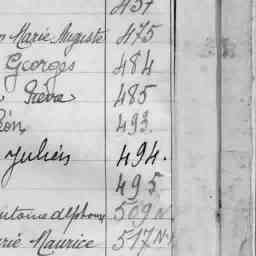 437
Marie Auguste 475
Georges 484
485
éon 493.
Julien 494.
495
Antoine Alphonse 509 N
Marie Maurice 517 N